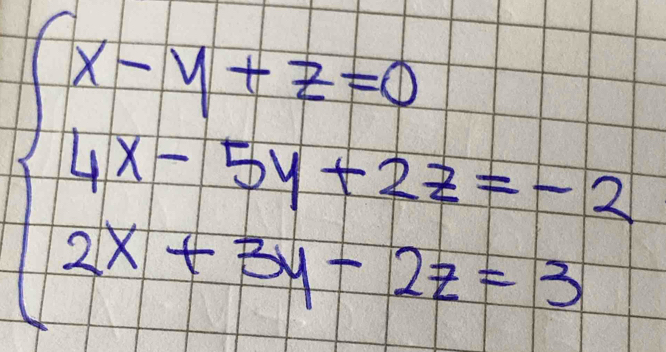 x - y + z = 0
4x - 5y + 2z = - 2
2x + 3y - 2z = 3